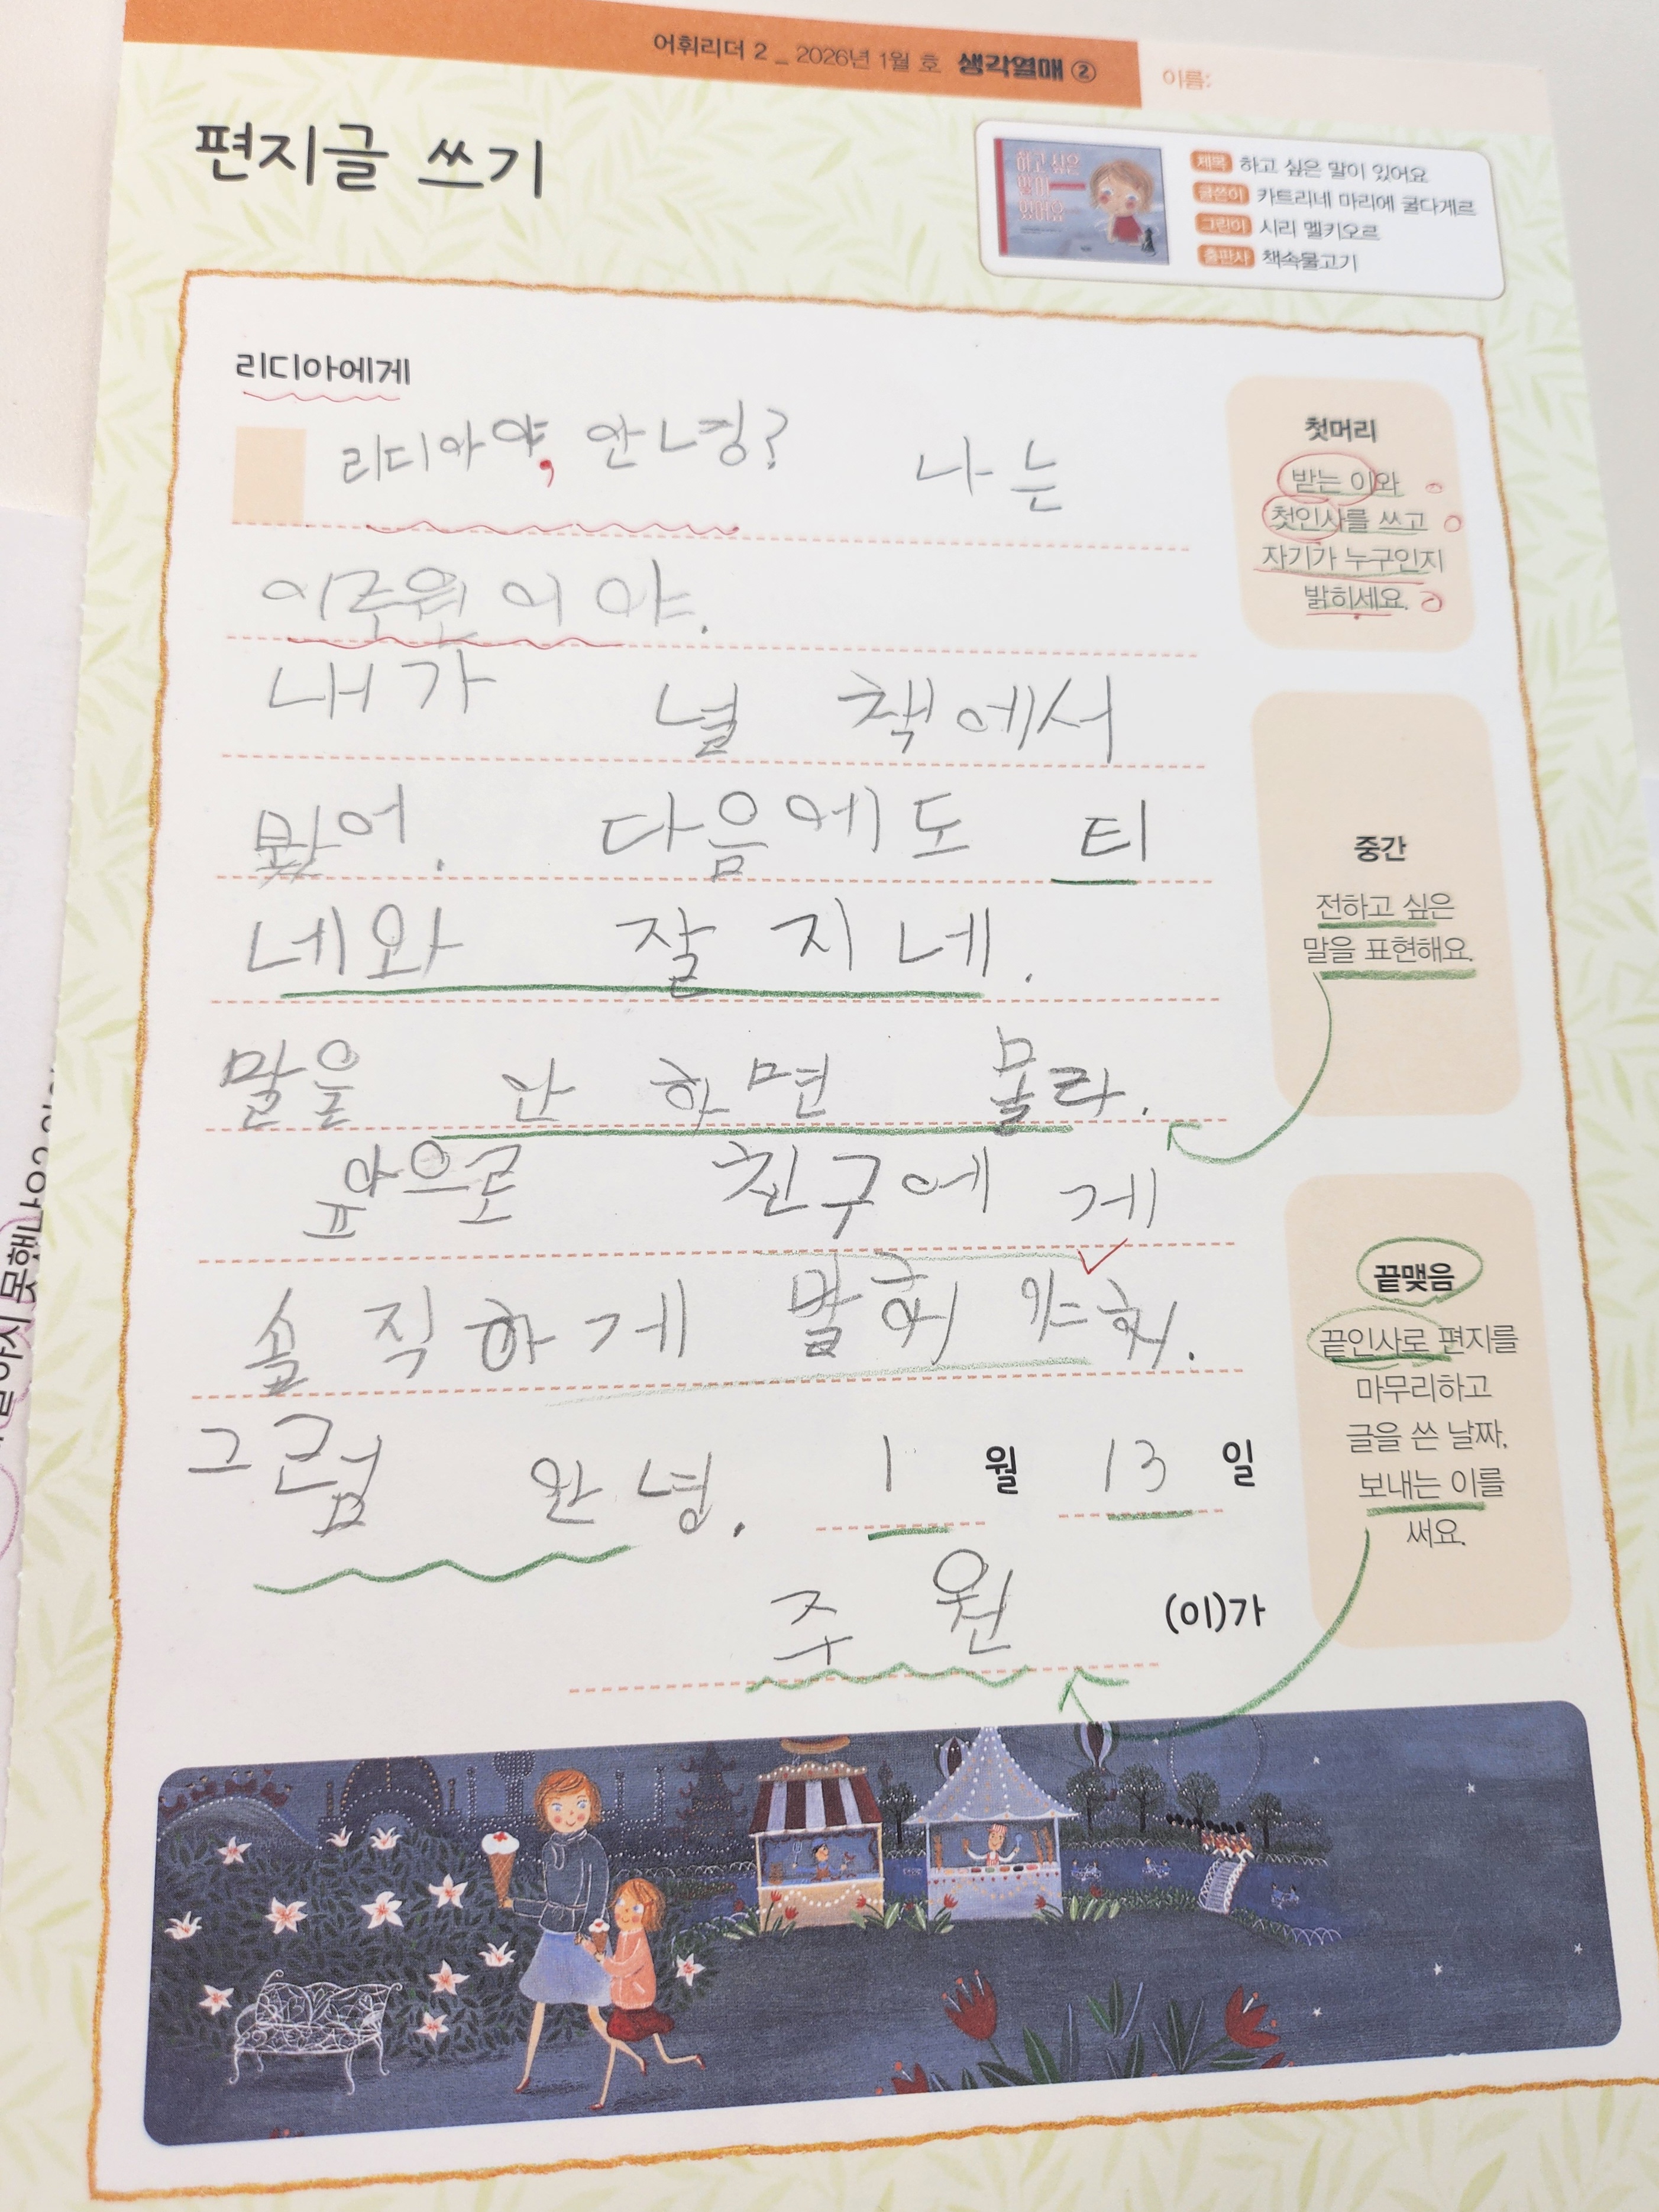 어휘리더 2 _ 2026년 1월 호 생각열매 ②
이름:
편지글 쓰기
하고 싶은
말이
있어요
제목 하고 싶은 말이 있어요
글쓴이 카트리네 마리에 굴다게르
그린이 시리 멜키오르
출판사 책속물고기
리디아에게
리디아야, 안녕? 나는
이주원이야.
내가 널 책에서
봤어. 다음에도 티
네와 잘 지네.
말을 안 하면 몰라.
앞으로 친구에게
솔직하게 말해야 해.
그럼 안녕. 1 월 13 일
주원 (이)가
첫머리
받는 이와
첫인사를 쓰고
자기가 누구인지
밝히세요.
중간
전하고 싶은
말을 표현해요.
끝맺음
끝인사로 편지를
마무리하고
글을 쓴 날짜,
보내는 이를
써요.